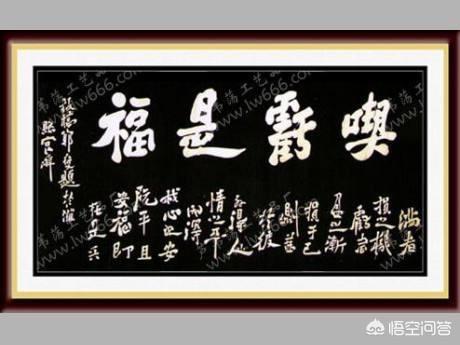 喫虧是福
滿者
損之機
虧者
盈之漸
損于己
則益
於彼
外得人
情之平
内得
我心之安
既平且
安福即
在是矣
板橋鄭燮題於濰
縣官廨
www.lw666.com
悟空问答